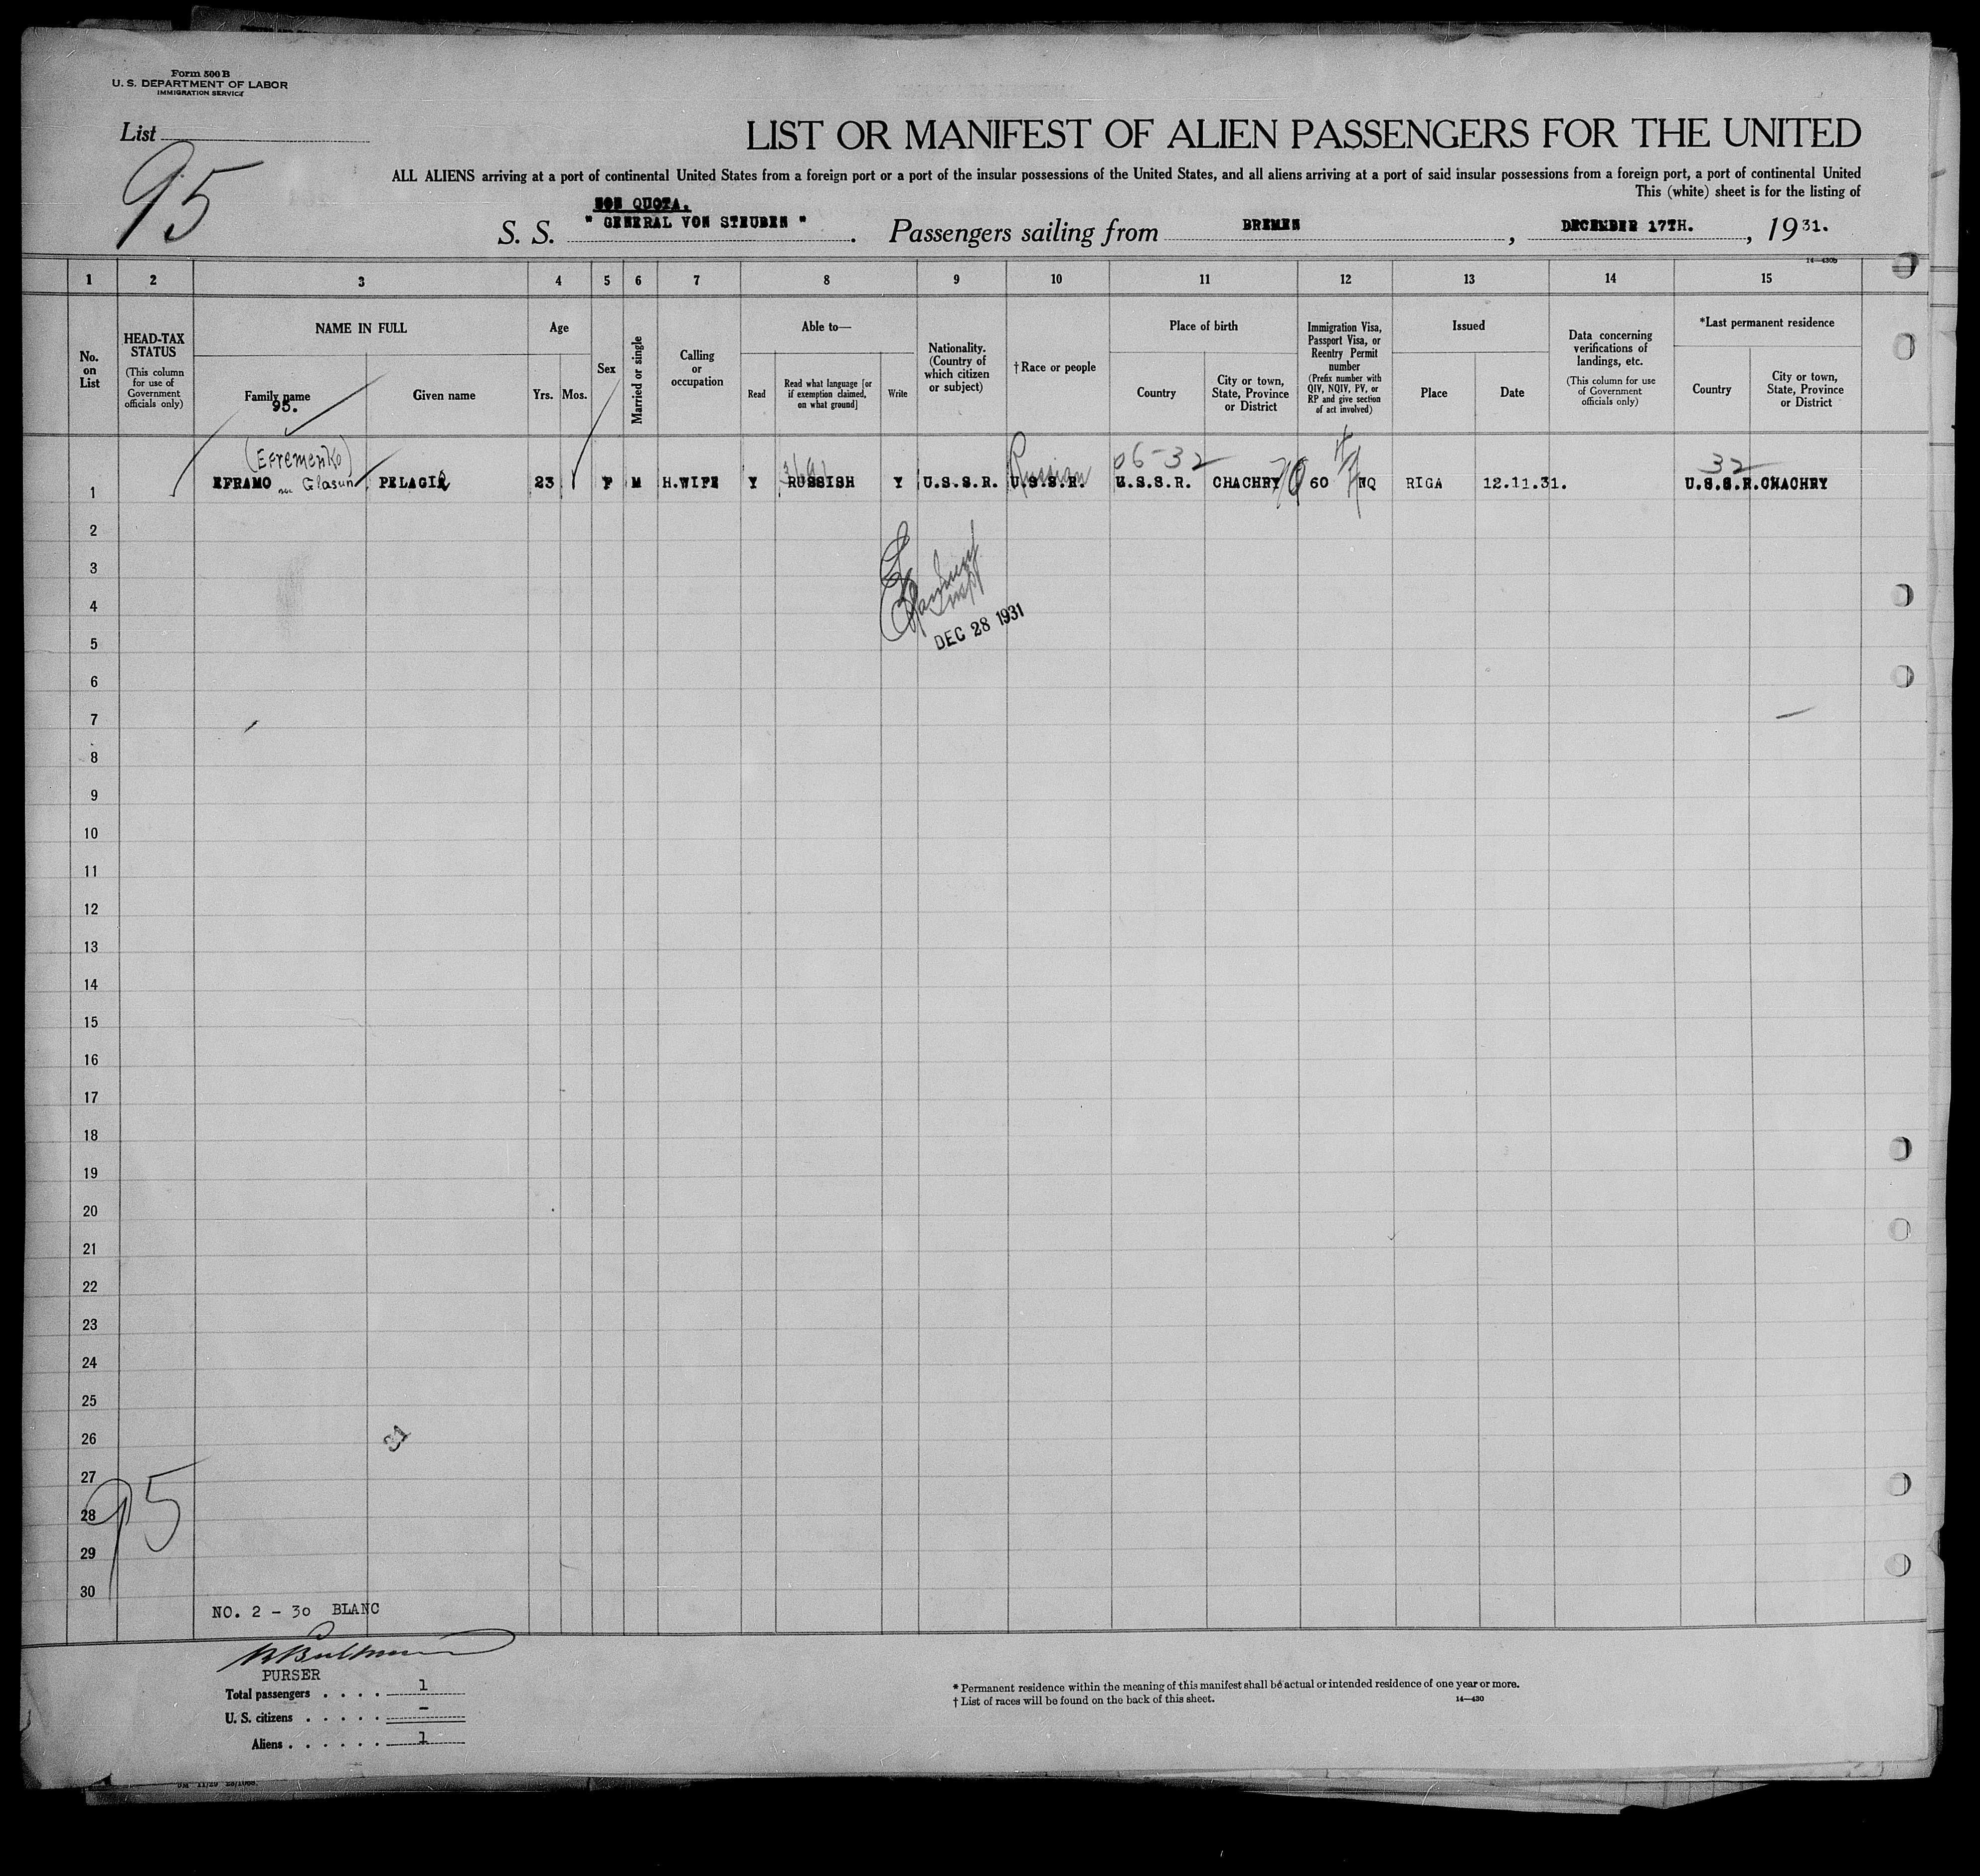 Form 500 B
U. S. DEPARTMENT OF LABOR
IMMIGRATION SERVICE
List
95
LIST OR MANIFEST OF ALIEN PASSENGERS FOR THE UNITED
ALL ALIENS arriving at a port of continental United States from a foreign port or a port of the insular possessions of the United States, and all aliens arriving at a port of said insular possessions from a foreign port, a port of continental United
This (white) sheet is for the listing of
NON QUOTA.
S. S. " GENERAL VON STEUBEN " . Passengers sailing from BREMEN , DECEMBER 17TH. , 1931.
14—430b
1 2 3 4 5 6 7 8 9 10 11 12 13 14 15
No. on List
HEAD-TAX STATUS
(This column for use of Government officials only)
NAME IN FULL
Family name
95.
Given name
Age
Yrs. Mos.
Sex
Married or single
Calling or occupation
Able to—
Read
Read what language [or if exemption claimed, on what ground]
Write
Nationality. (Country of which citizen or subject)
†Race or people
Place of birth
Country
City or town, State, Province or District
Immigration Visa, Passport Visa, or Reentry Permit number
(Prefix number with QIV, NQIV, PV, or RP and give section of act involved)
Issued
Place
Date
Data concerning verifications of landings, etc.
(This column for use of Government officials only)
*Last permanent residence
Country
City or town, State, Province or District
(Efremenko) Russian 06-32 32
1 EFRAMO nee Glasun PELAGIA 23 F M H.WIFE Y RUSSISH Y U.S.S.R. U.S.S.R. U.S.S.R. CHACHRY 60 NQ RIGA 12.11.31. U.S.S.R. CHACHRY
2
3
4
DEC 28 1931
5
6
7
8
9
10
11
12
13
14
15
16
17
18
19
20
21
22
23
24
25
26
31
27
28
95
29
30
NO. 2 - 30 BLANC
PURSER
Total passengers . . . . 1
U. S. citizens . . . . . -
Aliens . . . . . . 1
* Permanent residence within the meaning of this manifest shall be actual or intended residence of one year or more.
† List of races will be found on the back of this sheet.
14—430